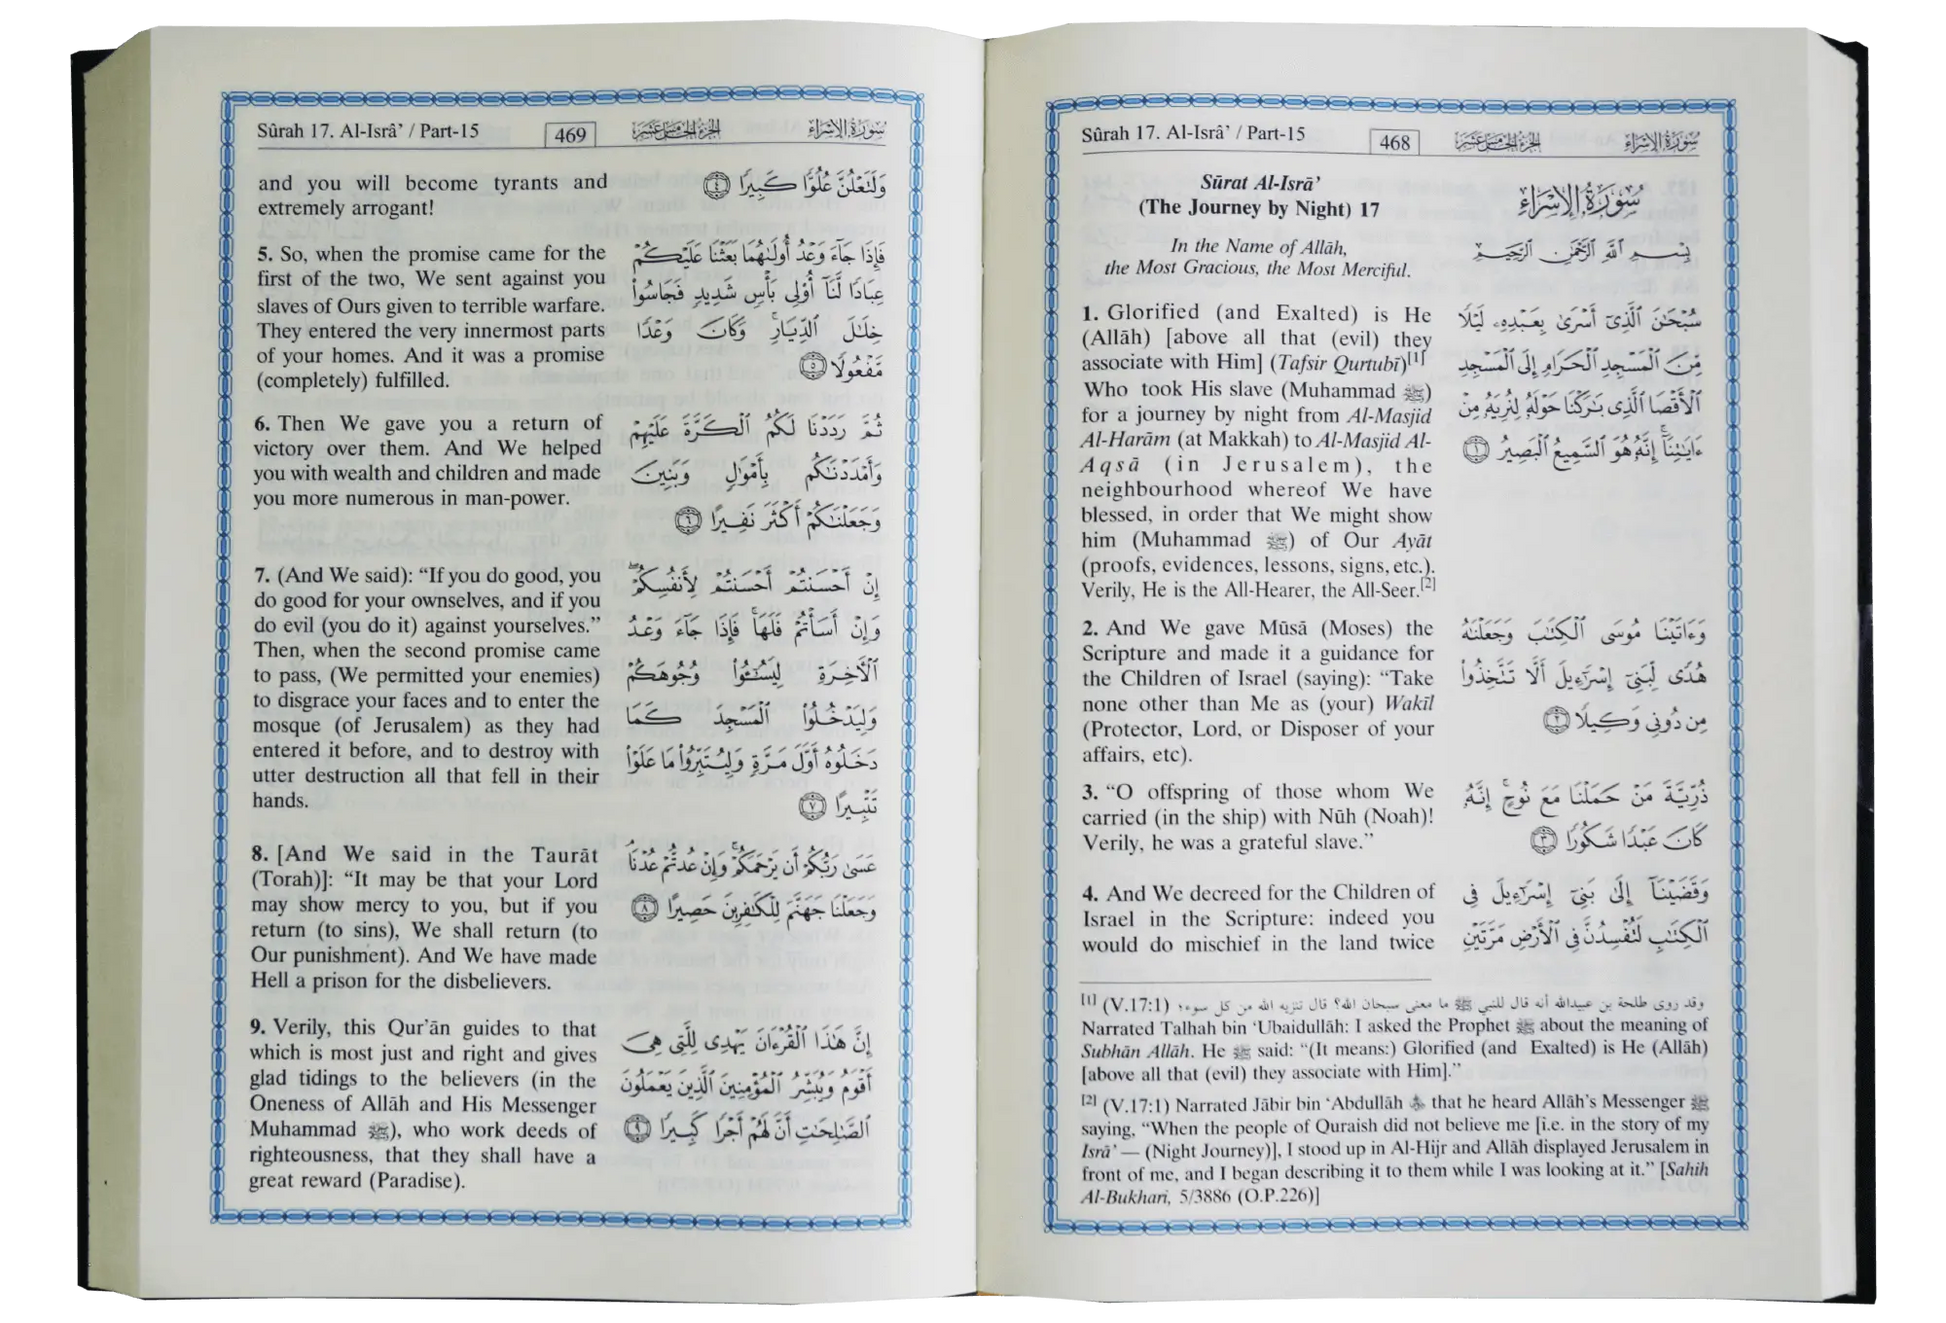 Sûrah 17. Al-Isrâ’ / Part-15
468
الجزء الخامس عشر
سورة الإسراء
Sūrat Al-Isrā’
(The Journey by Night) 17
سُورَةُ الإِسْرَاءِ
In the Name of Allāh,
the Most Gracious, the Most Merciful.
بِسْمِ اللَّهِ الرَّحْمَٰنِ الرَّحِيمِ
1. Glorified (and Exalted) is He
(Allāh) [above all that (evil) they
associate with Him] (Tafsir Qurtubī)[1]
Who took His slave (Muhammad ﷺ)
for a journey by night from Al-Masjid
Al-Harām (at Makkah) to Al-Masjid Al-
Aqsā (in Jerusalem), the
neighbourhood whereof We have
blessed, in order that We might show
him (Muhammad ﷺ) of Our Ayāt
(proofs, evidences, lessons, signs, etc.).
Verily, He is the All-Hearer, the All-Seer.[2]
سُبْحَٰنَ ٱلَّذِىٓ أَسْرَىٰ بِعَبْدِهِۦ لَيْلًا
مِّنَ ٱلْمَسْجِدِ ٱلْحَرَامِ إِلَى ٱلْمَسْجِدِ
ٱلْأَقْصَا ٱلَّذِى بَٰرَكْنَا حَوْلَهُۥ لِنُرِيَهُۥ مِنْ
ءَايَٰتِنَآ ۚ إِنَّهُۥ هُوَ ٱلسَّمِيعُ ٱلْبَصِيرُ ١
2. And We gave Mūsā (Moses) the
Scripture and made it a guidance for
the Children of Israel (saying): “Take
none other than Me as (your) Wakīl
(Protector, Lord, or Disposer of your
affairs, etc).
وَءَاتَيْنَا مُوسَى ٱلْكِتَٰبَ وَجَعَلْنَٰهُ
هُدًى لِّبَنِىٓ إِسْرَٰٓءِيلَ أَلَّا تَتَّخِذُوا۟
مِن دُونِى وَكِيلًا ٢
3. “O offspring of those whom We
carried (in the ship) with Nūh (Noah)!
Verily, he was a grateful slave.”
ذُرِّيَّةَ مَنْ حَمَلْنَا مَعَ نُوحٍ ۚ إِنَّهُۥ
كَانَ عَبْدًا شَكُورًا ٣
4. And We decreed for the Children of
Israel in the Scripture: indeed you
would do mischief in the land twice
وَقَضَيْنَآ إِلَىٰ بَنِىٓ إِسْرَٰٓءِيلَ فِى
ٱلْكِتَٰبِ لَتُفْسِدُنَّ فِى ٱلْأَرْضِ مَرَّتَيْنِ
[1] (V.17:1) وقد روى طلحة بن عبيدالله أنه قال للنبي ﷺ ما معنى سبحان الله؟ قال تنزيه الله من كل سوء؛
Narrated Talhah bin ‘Ubaidullāh: I asked the Prophet ﷺ about the meaning of
Subhān Allāh. He ﷺ said: “(It means:) Glorified (and Exalted) is He (Allāh)
[above all that (evil) they associate with Him].”
[2] (V.17:1) Narrated Jābir bin ‘Abdullāh that he heard Allāh’s Messenger ﷺ
saying, “When the people of Quraish did not believe me [i.e. in the story of my
Isrā’ — (Night Journey)], I stood up in Al-Hijr and Allāh displayed Jerusalem in
front of me, and I began describing it to them while I was looking at it.” [Sahih
Al-Bukhari, 5/3886 (O.P.226)]
Sûrah 17. Al-Isrâ’ / Part-15
469
الجزء الخامس عشر
سورة الإسراء
and you will become tyrants and
extremely arrogant!
وَلَتَعْلُنَّ عُلُوًّا كَبِيرًا ٤
5. So, when the promise came for the
first of the two, We sent against you
slaves of Ours given to terrible warfare.
They entered the very innermost parts
of your homes. And it was a promise
(completely) fulfilled.
فَإِذَا جَآءَ وَعْدُ أُولَىٰهُمَا بَعَثْنَا عَلَيْكُمْ
عِبَادًا لَّنَآ أُو۟لِى بَأْسٍ شَدِيدٍ فَجَاسُوا۟
خِلَٰلَ ٱلدِّيَارِ ۚ وَكَانَ وَعْدًا
مَّفْعُولًا ٥
6. Then We gave you a return of
victory over them. And We helped
you with wealth and children and made
you more numerous in man-power.
ثُمَّ رَدَدْنَا لَكُمُ ٱلْكَرَّةَ عَلَيْهِمْ
وَأَمْدَدْنَٰكُم بِأَمْوَٰلٍ وَبَنِينَ
وَجَعَلْنَٰكُمْ أَكْثَرَ نَفِيرًا ٦
7. (And We said): “If you do good, you
do good for your ownselves, and if you
do evil (you do it) against yourselves.”
Then, when the second promise came
to pass, (We permitted your enemies)
to disgrace your faces and to enter the
mosque (of Jerusalem) as they had
entered it before, and to destroy with
utter destruction all that fell in their
hands.
إِنْ أَحْسَنتُمْ أَحْسَنتُمْ لِأَنفُسِكُمْ ۖ
وَإِنْ أَسَأْتُمْ فَلَهَا ۚ فَإِذَا جَآءَ وَعْدُ
ٱلْءَاخِرَةِ لِيَسُۥٓـُٔوا۟ وُجُوهَكُمْ
وَلِيَدْخُلُوا۟ ٱلْمَسْجِدَ كَمَا
دَخَلُوهُ أَوَّلَ مَرَّةٍ وَلِيُتَبِّرُوا۟ مَا عَلَوْا۟
تَتْبِيرًا ٧
8. [And We said in the Taurāt
(Torah)]: “It may be that your Lord
may show mercy to you, but if you
return (to sins), We shall return (to
Our punishment). And We have made
Hell a prison for the disbelievers.
عَسَىٰ رَبُّكُمْ أَن يَرْحَمَكُمْ ۚ وَإِنْ عُدتُّمْ عُدْنَا ۘ
وَجَعَلْنَا جَهَنَّمَ لِلْكَٰفِرِينَ حَصِيرًا ٨
9. Verily, this Qur’ān guides to that
which is most just and right and gives
glad tidings to the believers (in the
Oneness of Allāh and His Messenger
Muhammad ﷺ), who work deeds of
righteousness, that they shall have a
great reward (Paradise).
إِنَّ هَٰذَا ٱلْقُرْءَانَ يَهْدِى لِلَّتِى هِىَ
أَقْوَمُ وَيُبَشِّرُ ٱلْمُؤْمِنِينَ ٱلَّذِينَ يَعْمَلُونَ
ٱلصَّٰلِحَٰتِ أَنَّ لَهُمْ أَجْرًا كَبِيرًا ٩